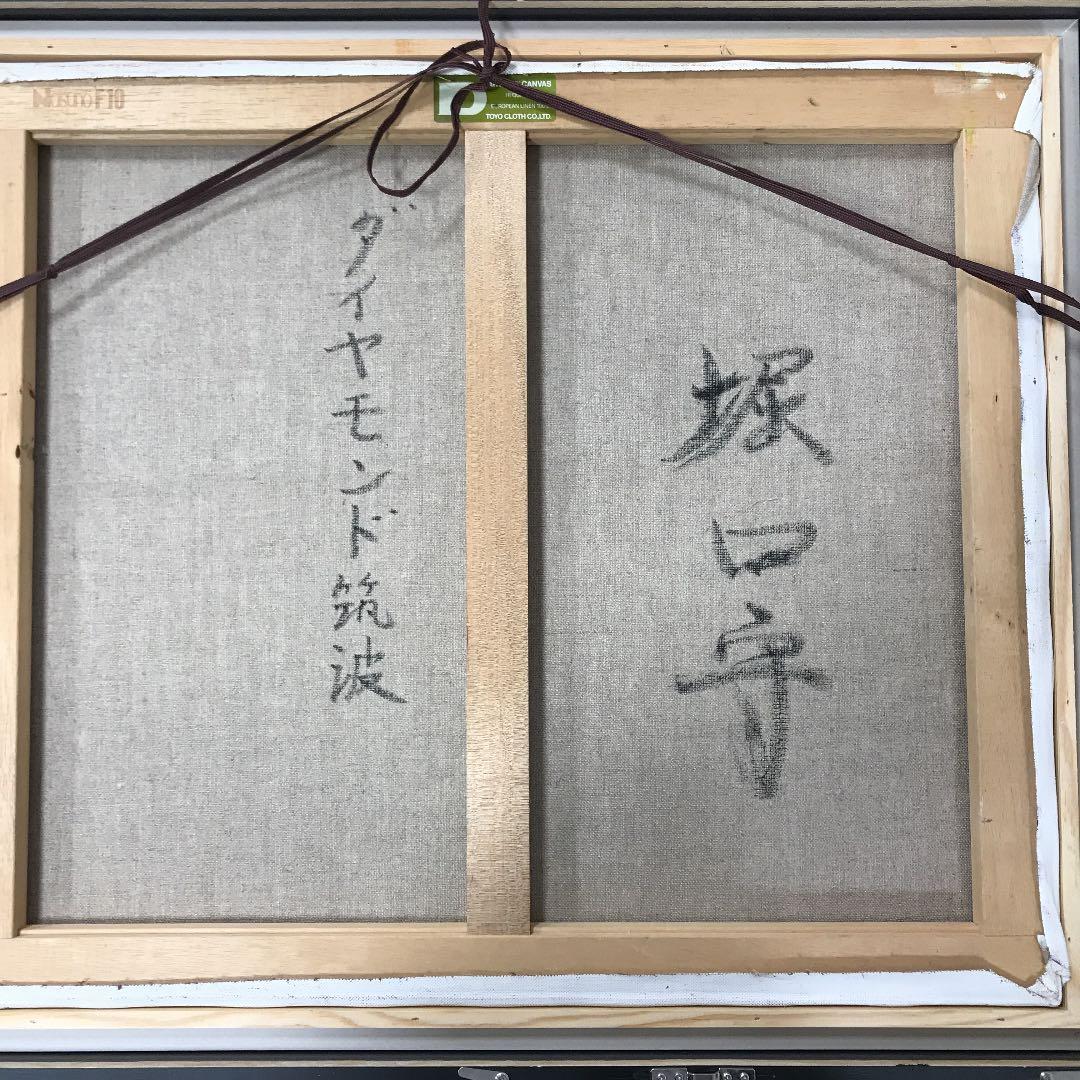 F10
CANVAS
EUROPEAN LINEN 100%
TOYO CLOTH CO.,LTD.
堀口守
ダイヤモンド筑波